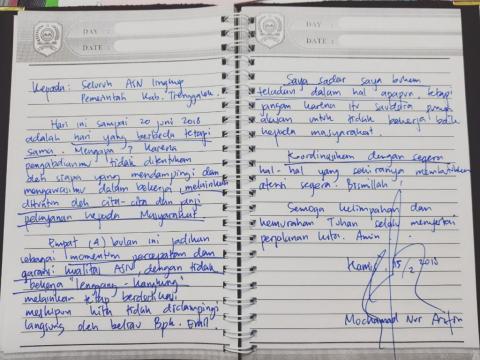 DAY :
DATE :
Kepada: Seluruh ASN lingkup
Pemerintah Kab. Trenggalek.
Hari ini sampai 20 juni 2018
adalah hari yang berbeda tetapi
sama. Mengapa? karena
pengabdianmu tidak ditentukan
oleh siapa yang mendampingi dan
mengawasimu dalam bekerja, melainkan
oleh cita-cita dan janji
pelayanan kepada Masyarakat.
Empat (4) bulan ini jadikan
sebagai momentum percepatan dan
garansi kualitas ASN, dengan tidak
bekerja
melainkan tetap berdedikasi
meskipun kita tidak didampingi
langsung oleh beliau Bpk. Emil.
DAY :
DATE :
Saya sadar saya bukan
teladan dalam hal apapun, tetapi
jangan karena itu saudara punya
alasan untuk tidak bekerja baik
kepada masyarakat.
Koordinasikan dengan segera
hal-hal yang sekiranya membutuhkan
atensi segera. Bismillah!
Semoga kelimpahan dan
kemurahan Tuhan selalu menyertai
perjalanan kita. Amin
Kamis, 15/2 2018
Mochamad Nur Arifin